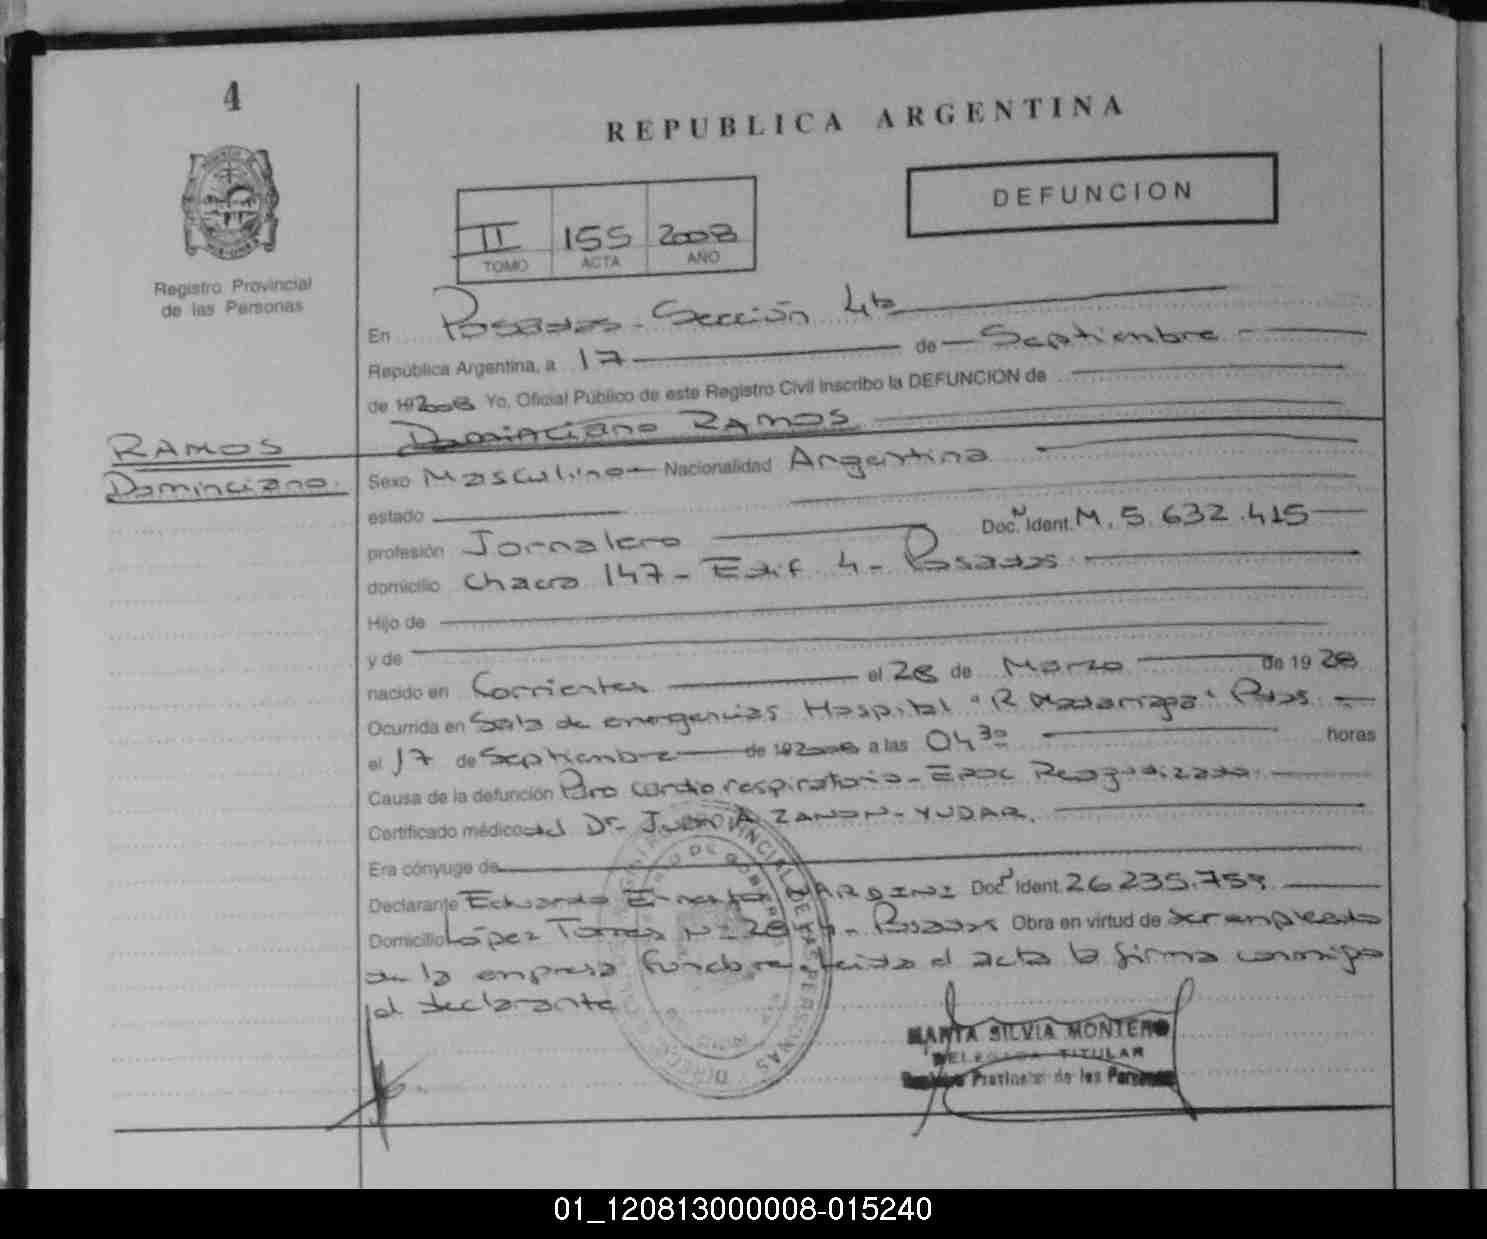 4
REPUBLICA ARGENTINA
DEFUNCION
II 155 2008
TOMO ACTA AÑO
Registro Provincial
de las Personas
En Posadas - Sección 4ta
República Argentina, a 17 de Septiembre
de 192008 Yo, Oficial Público de este Registro Civil inscribo la DEFUNCION de
Dominciano RAMOS
RAMOS
Dominciano.
Sexo Masculino Nacionalidad Argentina
estado
profesión Jornalero Doc. N Ident. M. 5.632.415
domicilio Chacra 147 - Edif 4 - Posadas
Hijo de
y de
nacido en Corrientes el 28 de Marzo de 1928
Ocurrida en Sala de emergencias Hospital "R Madariaga" Pdas
el 17 de Septiembre de 192008 a las 04 30 horas
Causa de la defunción Paro cardio respiratorio - EPOC Reagudizado
Certificado médico del Dr. ZANON - YUDAR.
Era cónyuge de
Declarante Eduardo Ernesto NARDINI Doc N Ident 26.235.759
Domicilio López Torres Nº - Posadas Obra en virtud de ser empleado
de la empresa funebre leida el acta la firma conmigo
el declarante
MARTA SILVIA MONTERO
DELEGADA TITULAR
Registro Provincial de las Personas
01_120813000008-015240